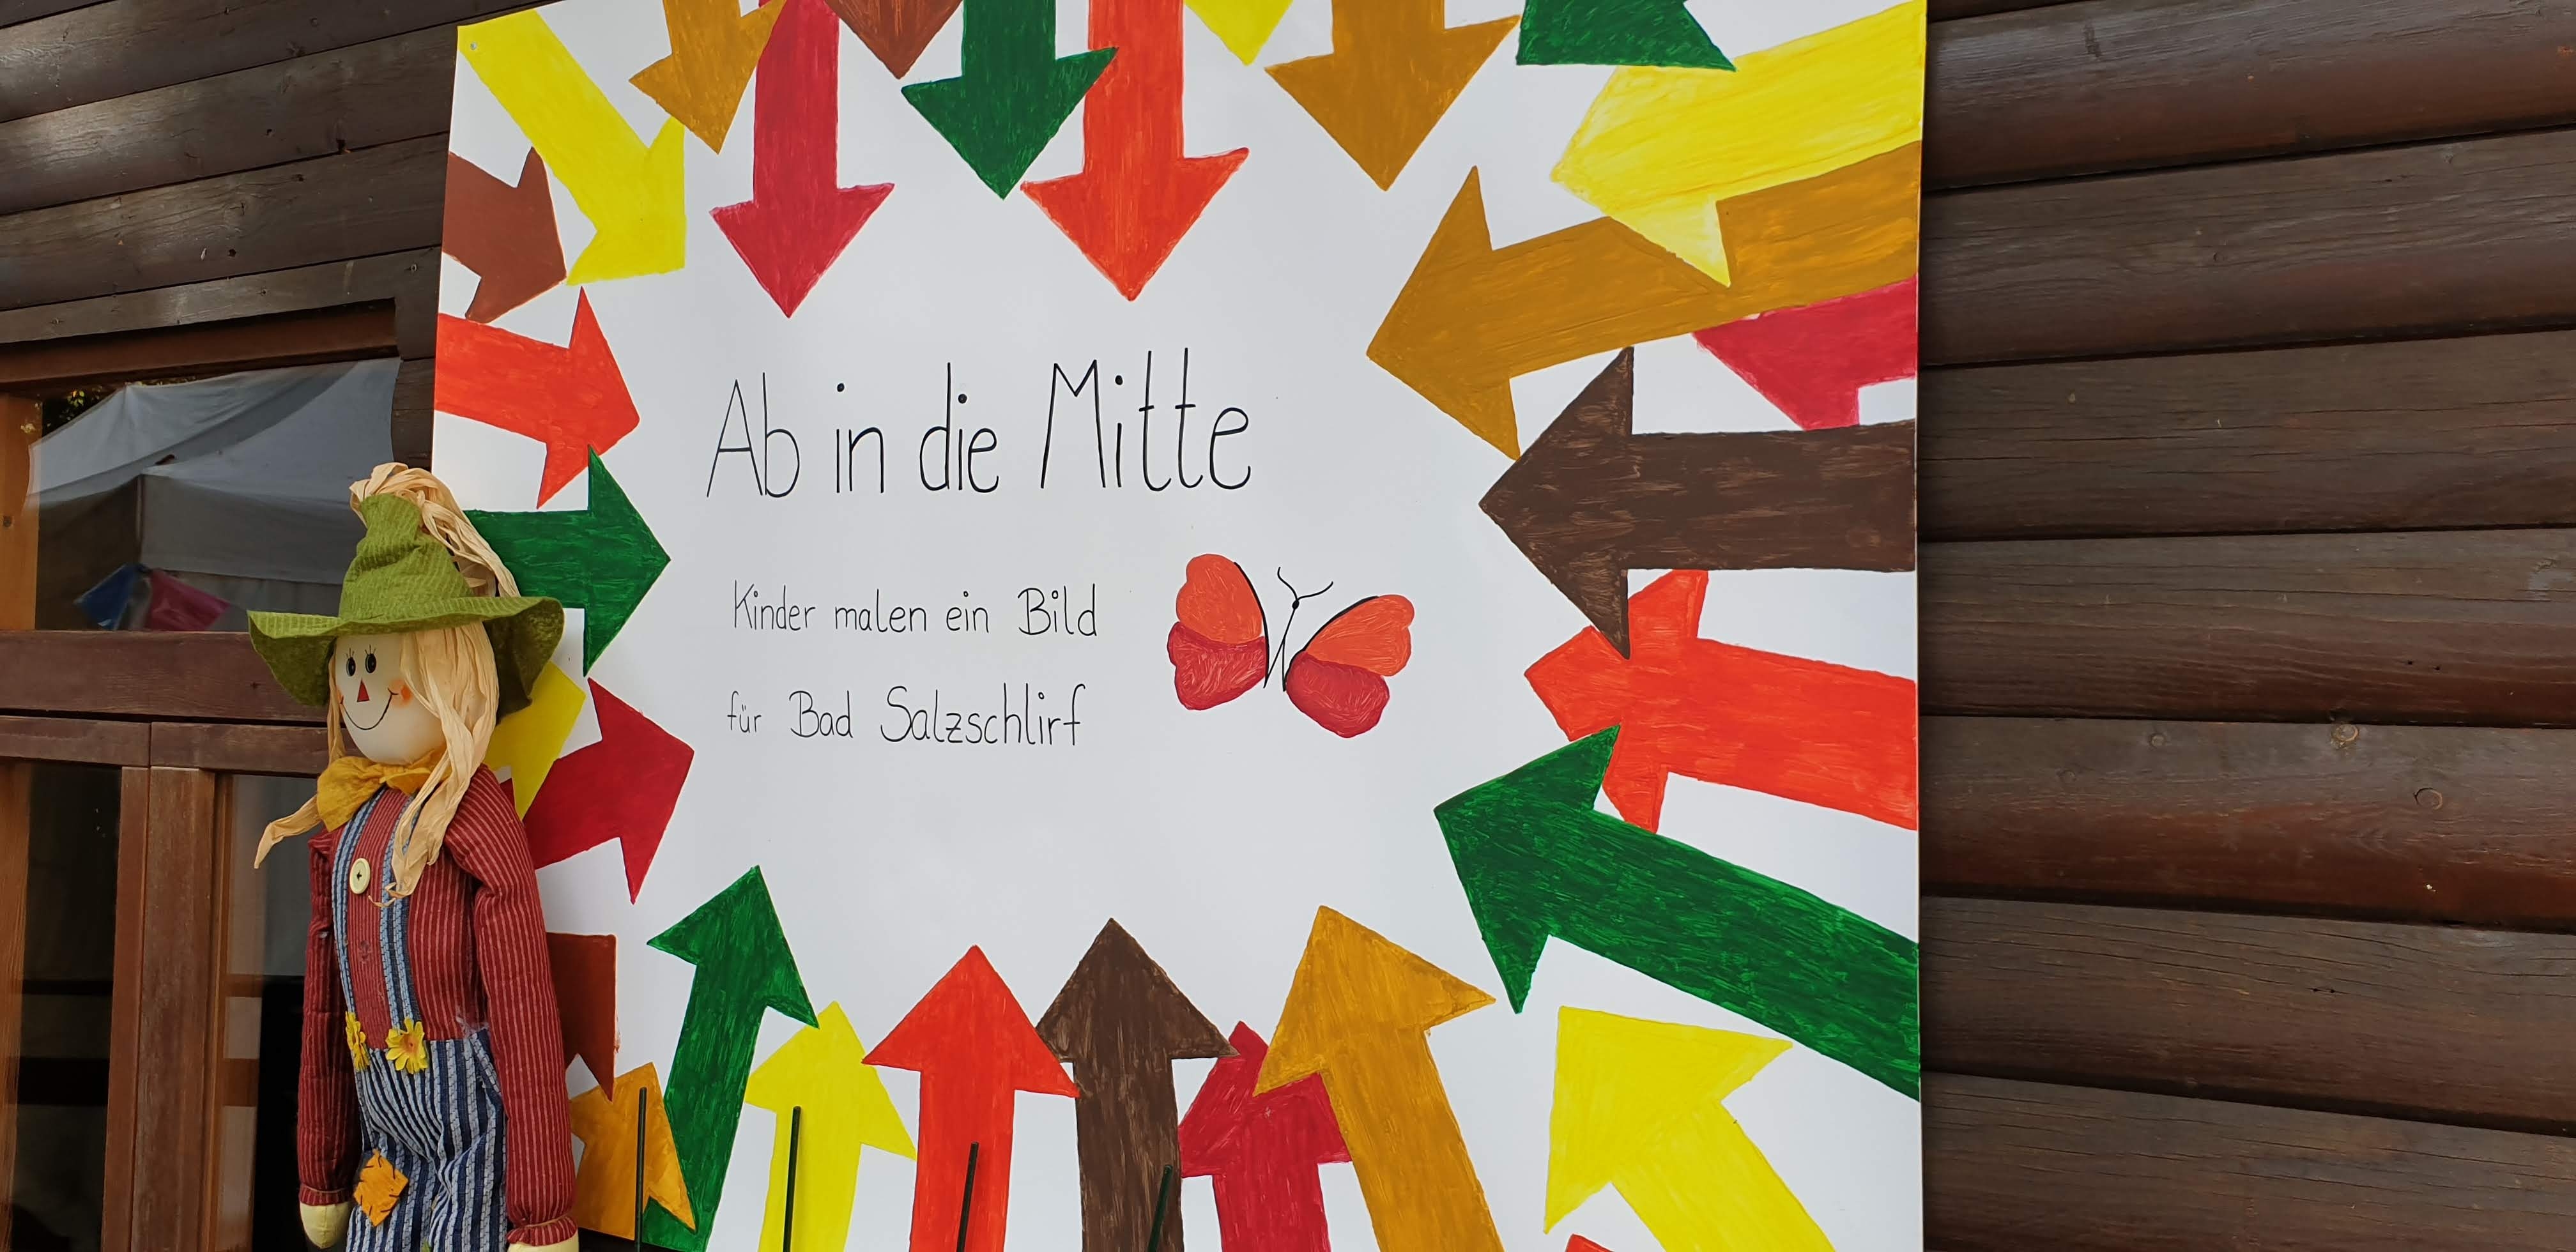 Ab in die Mitte
Kinder malen ein Bild
für Bad Salzschlirf